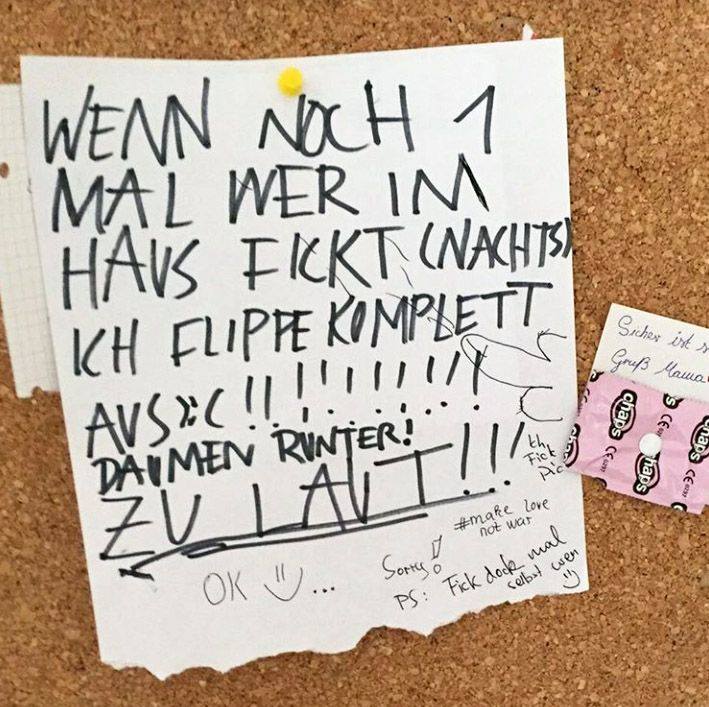 WENN NOCH 1
MAL WER IM
HAUS FICKT (NACHTS)
ICH FLIPPE KOMPLETT
AUS >:( !! ! ! ! ! ! ! !
DAUMEN RUNTER!
ZU LAUT!!!
Fick
#make love
not war
OK :) ...
Sorry!
PS: Fick doch mal
selbst wen
:)
Sicher ist
Gruß Mama
chaps
CE
chaps
chaps
CE
chaps